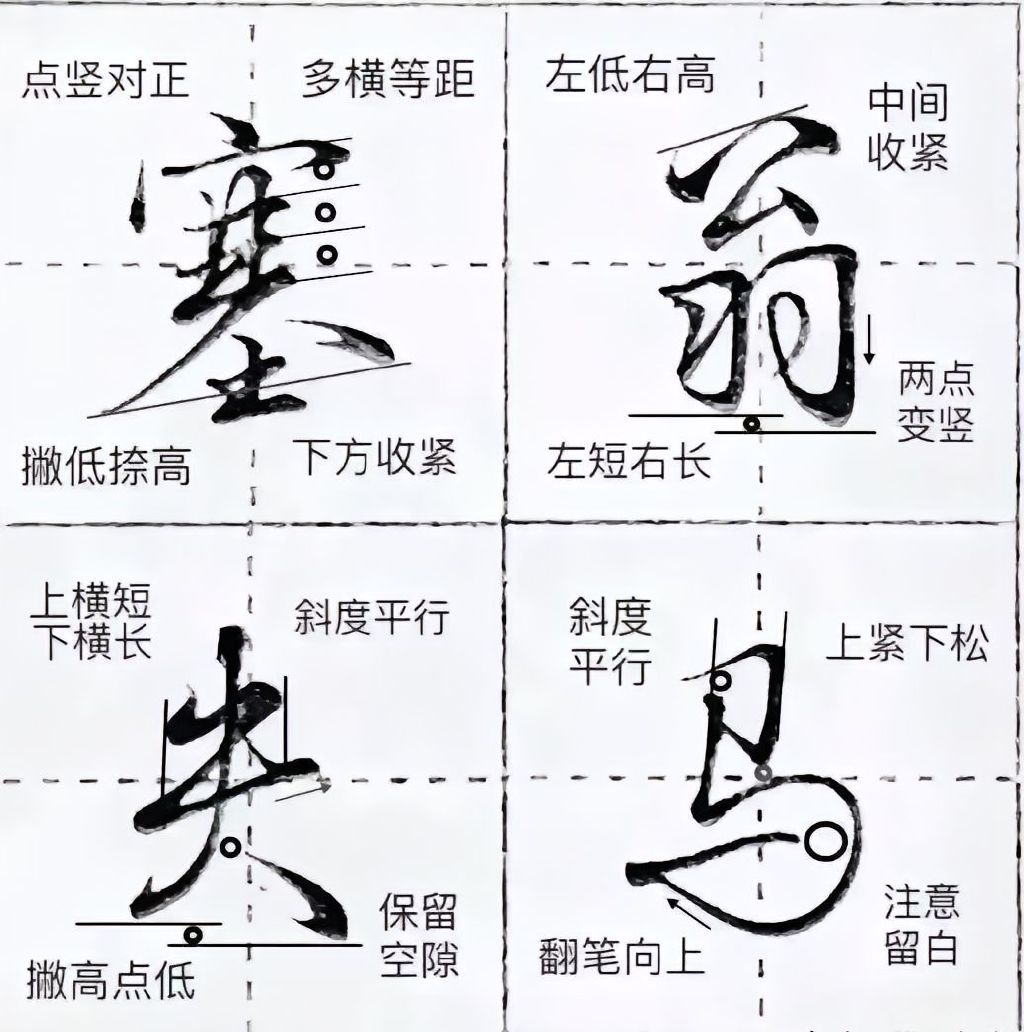 点竖对正
多横等距
塞
撇低捺高
下方收紧
左低右高
中间
收紧
翁
两点
变竖
左短右长
上横短
下横长
斜度平行
失
保留
空隙
撇高点低
斜度
平行
上紧下松
马
注意
留白
翻笔向上